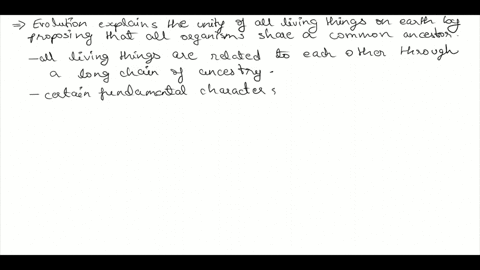 ⇒ Evolution explains the unity of all living things on earth by
proposing that all organisms share a common ancestor.
- all living things are related to each other through
a long chain of ancestry.
- certain fundamental characters